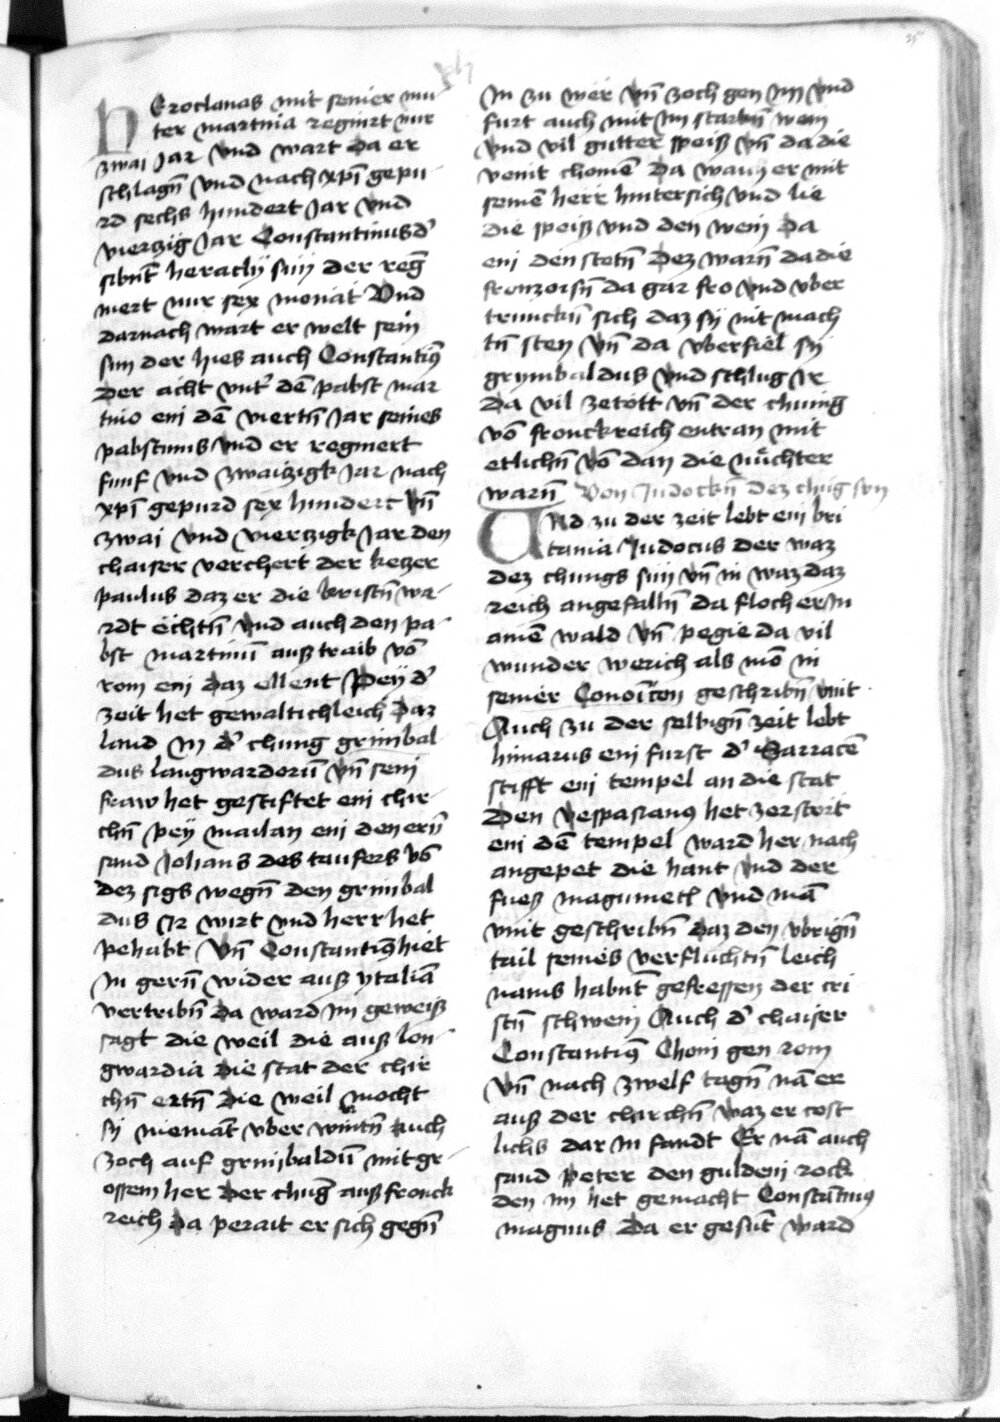 HEroclanas mit seiner mu
ter martina regnirt nur
zwai Jar vnd wart da er
schlagñ vnd nach xp̄i gepu
rd sechs hundert Jar vnd
vierzig Jar Constantinus d'
sibnt heraclÿ sun der reg̃
niert nur sex monat Vnd
darnach wart er welt sein
sun der hies auch Constantiꝰ
der acht vnt' dē pabst mar
tino ein dē viertñ Jar seines
pabstums vnd er regniert
funf vnd zwaiczigk Jar nach
xp̄i gepurd sex hundert vñ
zwai vnd vierczigk Jar den
chaiser verchert der keczer
paulus daz er die kristñ wa
rdt echttñ vnd auch den pa
bst martinū ausz traib vō
rom ein daz ellent Peÿ d'
zeit het gewaltichleich daz
land Jn d' chung grinbal
dus langwardorū vñ sein
fraw het gestiftet ein chir
chñ peÿ mailan ein den ern̄
sand Johans des taufers vō
dez sigs wegñ den grinbal
dus Jr wirt vnd herr het
pehabt Vñ Constantiꝰ hiet
Jn gern̄ wider ausz ytaliā
vertribñ da ward Jm geweisz
sagt die weil die ausz lon
gwardia die stat der chir
chñ ertñ die weil mocht
sÿ niemāt vber wintñ Auch
zoch auf grinbaldū mit gr
ossem her der chug̃ ausz franck
reich da perait er sich gegñ
Jn zu wer vñ zoch gen Jm vnd
furt auch mit Jm starkñ wein
vnd vil gutter speisz vñ da die
veint chomē da waich er mit
seinē herr hintersich vnd lie
die speisz vnd den wein da
ein den stetñ dez warñ da die
franzosñ da gar fro vnd vber
trunckñ sich daz sÿ nit mach
tñ sten vñ da vberfiel sÿ
grymbaldus vnd schlug Jr
da vil ze tott vñ der chunig
vō franckreich entran mit
etlichñ vō dan die nüchter
warñ Von Judockñ dez chūg sun
VNd zu der zeit lebt ein bri
tania Judocus der waz
dez chungs sun vñ in waz daz
reich angefallñ da floch er Jn
ainē wald vñ pegie da vil
wunder werich als mō in
seiner geschribñ vint
Auch zu der selbigñ zeit lebt
himarus ein furst d' Sarracē
stifft ein tempel an die stat
den vespasianꝰ het zerstort
ein dē tempel ward her nach
angepet die hant vnd der
fuesz magumetz vnd mā
vint geschribñ daz den vbrigñ
tail seines verfluchtñ leich
nams habnt gefressen der cri
stñ schwein Auch d' chaiser
Constantiꝰ Chom gen rom
Vñ nach zwelf tagñ nā er
ausz der charchñ waz er cost
lichs dar Jn fandt Er nā auch
sand peter den gulden rock
den Jm het gemacht Constātinꝰ
magnus da er gesūt ward